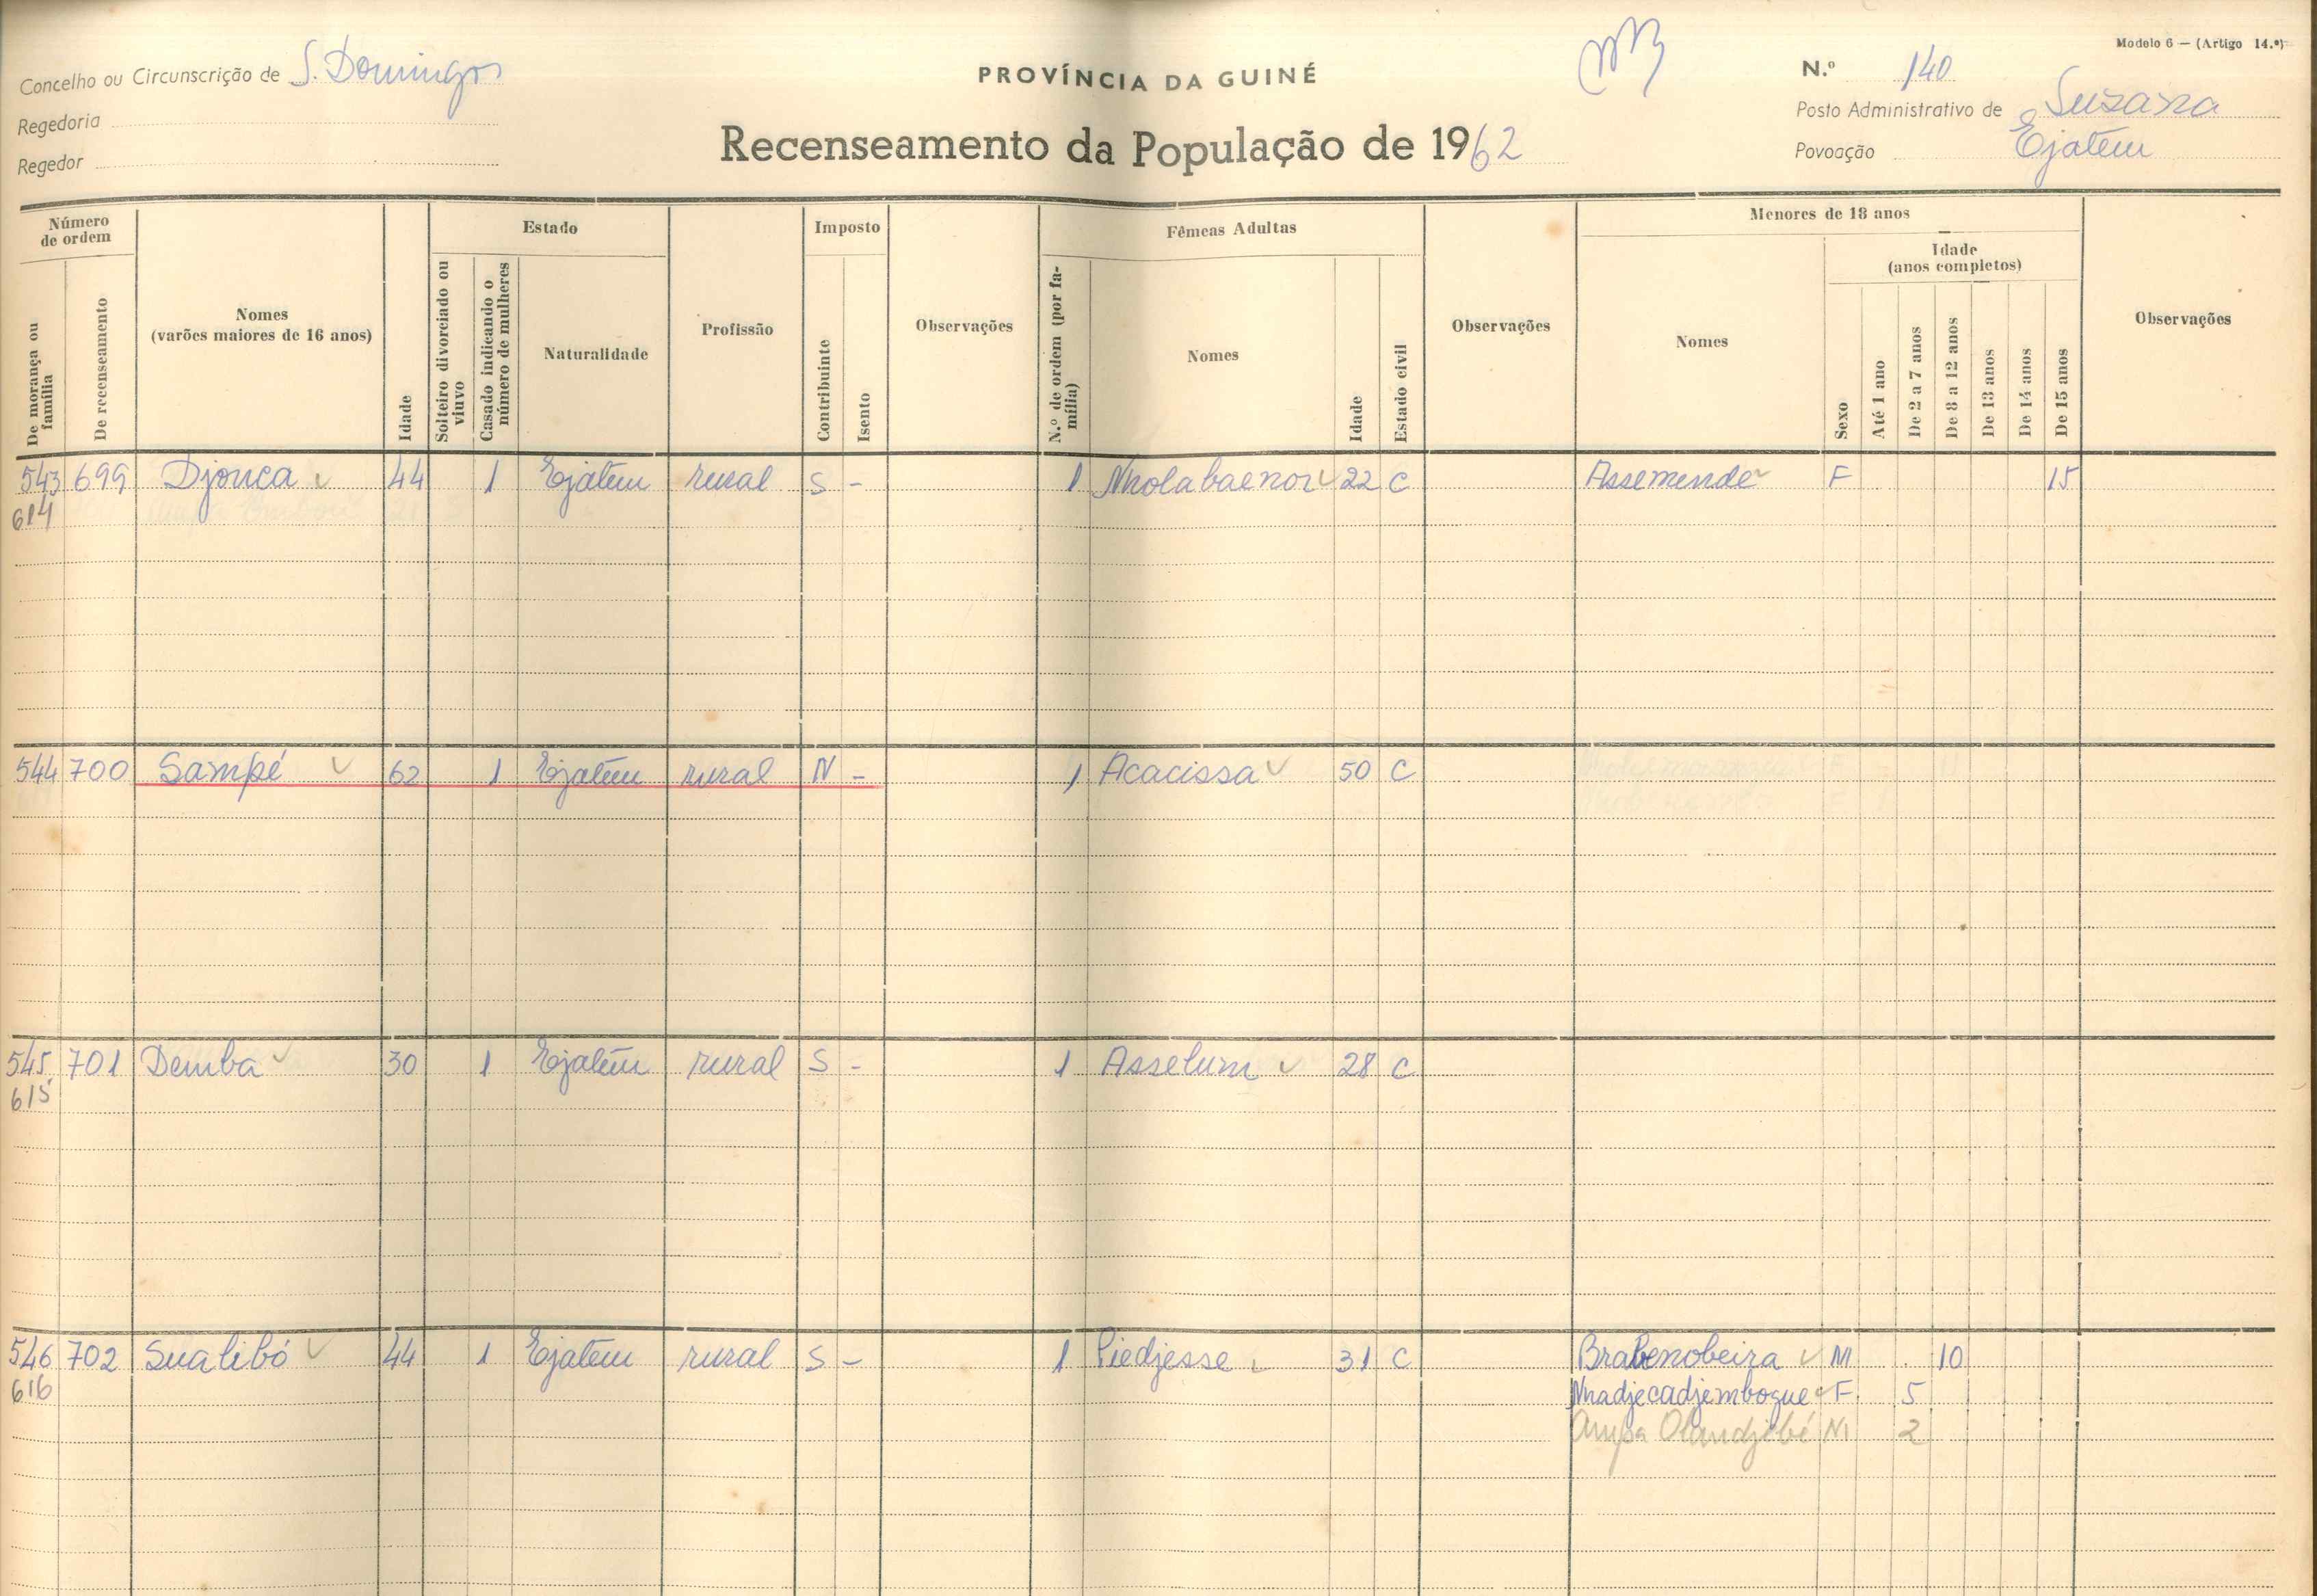 Modelo 6 — (Artigo 14.º)
Concelho ou Circunscrição de S. Domingos
PROVÍNCIA DA GUINÉ
N.º 140
Regedoria
Posto Administrativo de Suzana
Regedor
Recenseamento da População de 1962
Povoação Ejatem
Número de ordem
De morança ou família
De recenseamento
Nomes
(varões maiores de 16 anos)
Idade
Estado
Solteiro divorciado ou viuvo
Casado indicando o número de mulheres
Naturalidade
Profissão
Imposto
Contribuinte
Isento
Observações
Fêmeas Adultas
N.º de ordem (por família)
Nomes
Idade
Estado civil
Observações
Menores de 18 anos
Nomes
Sexo
Idade
(anos completos)
Até 1 ano
De 2 a 7 anos
De 8 a 12 anos
De 13 anos
De 14 anos
De 15 anos
Observações
543 699 Djonca 44 1 Ejatem rural S - 1 Nholabaenor 22 C Assemende F 15
614
544 700 Sampé 62 1 Ejatem rural N - 1 Acacissa 50 C
545 701 Demba 30 1 Ejatem rural S - 1 Asselum 28 C
615
546 702 Sualibó 44 1 Ejatem rural S - 1 Piedjesse 31 C Brabenobeira M 10
616 Nhadjecadjemboque F 5
Ampa Olandjebé M 2